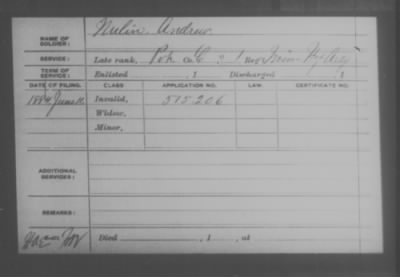 NAME OF SOLDIER: Nulin, Andrew
SERVICE: Late rank, Pvt Co. C, 1 Reg't Ky
TERM OF SERVICE: Enlisted , 1 Discharged , 1
DATE OF FILING. CLASS APPLICATION NO. LAW. CERTIFICATE NO.
1884 June 11 Invalid, 515.206
Widow,
Minor,
ADDITIONAL SERVICES:
REMARKS:
Died , 1 , at